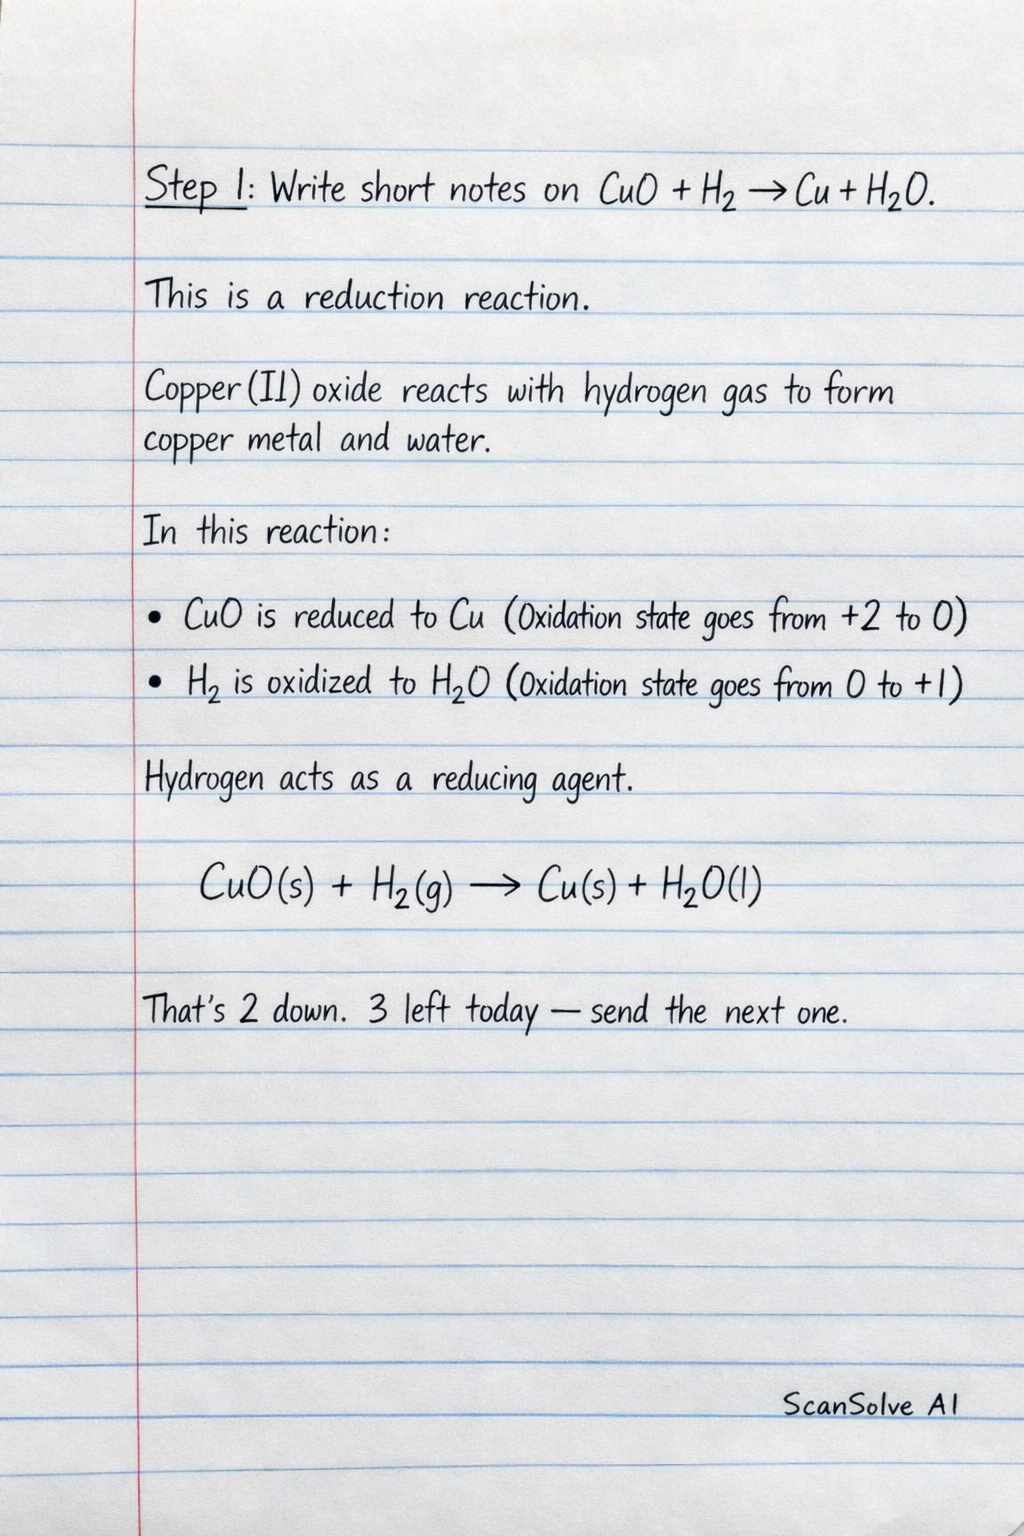 Step 1: Write short notes on CuO + H₂ → Cu + H₂O.
This is a reduction reaction.
Copper (II) oxide reacts with hydrogen gas to form
copper metal and water.
In this reaction:
• CuO is reduced to Cu (Oxidation state goes from +2 to 0)
• H₂ is oxidized to H₂O (Oxidation state goes from 0 to +1)
Hydrogen acts as a reducing agent.
CuO(s) + H₂(g) → Cu(s) + H₂O(l)
That's 2 down. 3 left today — send the next one.
ScanSolve AI